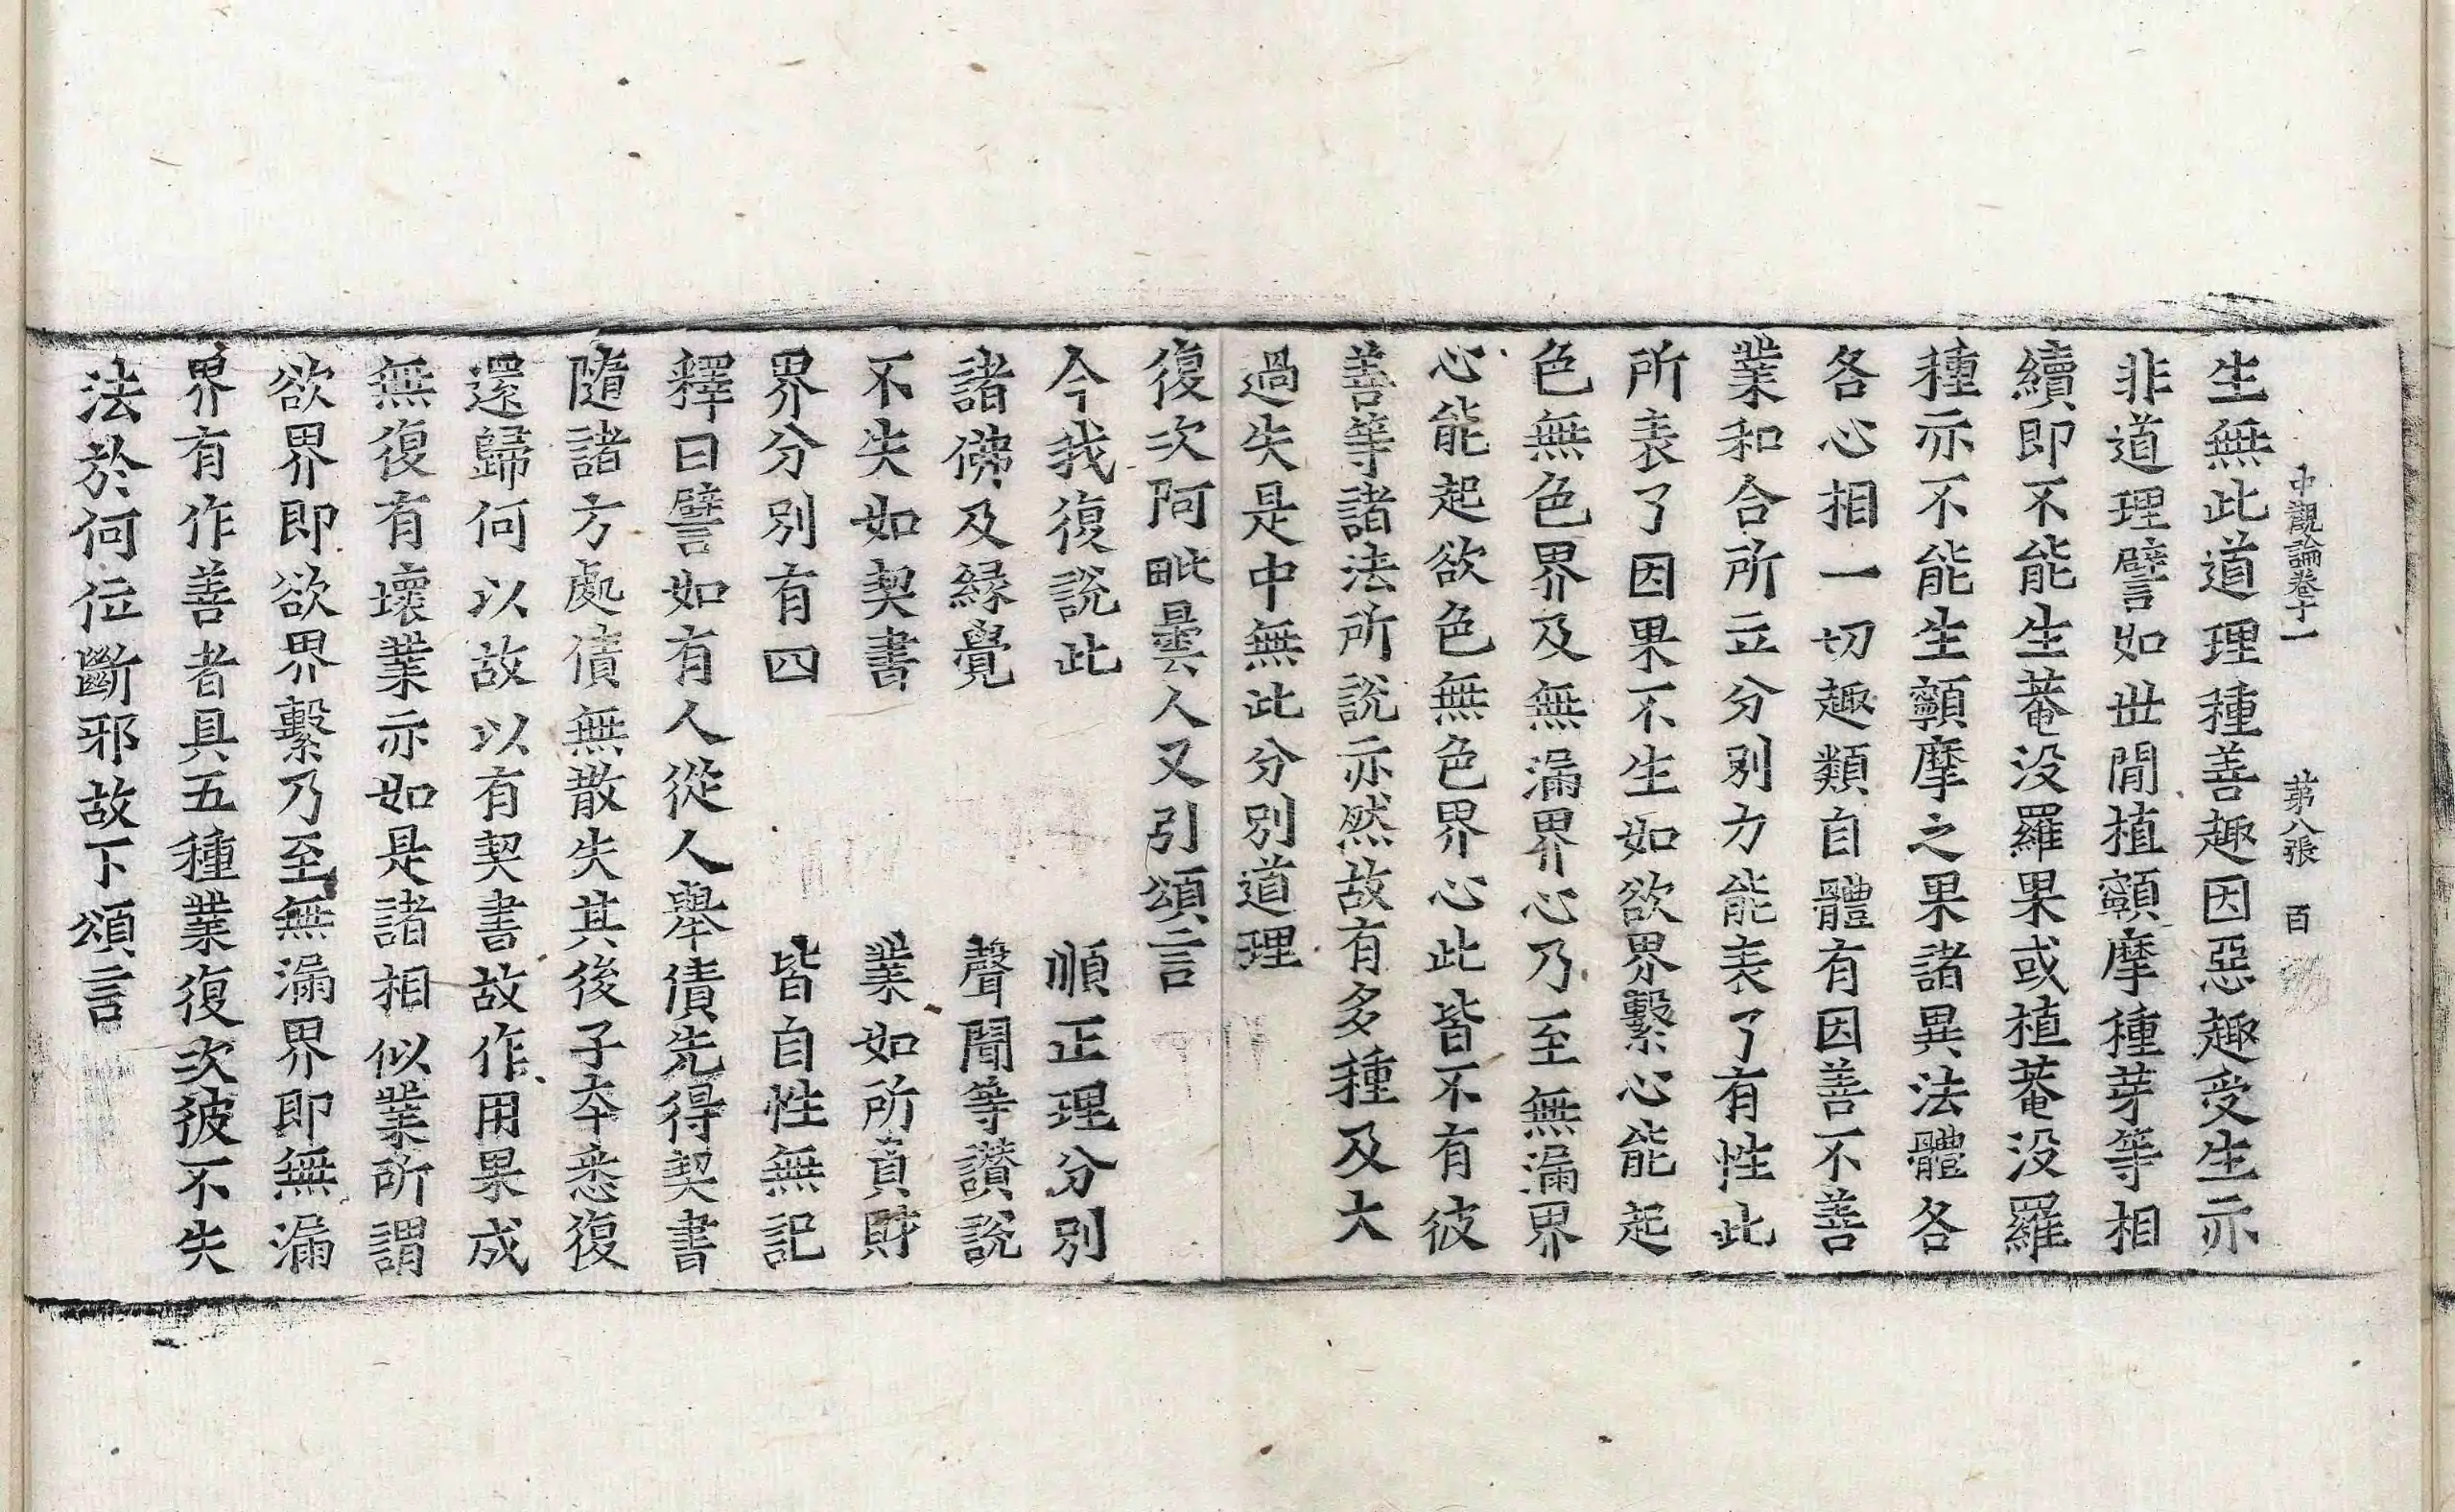 中觀論卷十一 苐八張 百
生無此道理種善趣因惡趣受生亦
非道理譬如世間植𩕳摩種芽等相
續即不能生菴没羅果或植菴没羅
種亦不能生𩕳摩之果諸異法體各
各心相一切趣類自體有因善不善
業和合所立分別力能表了有性此
所表了因果不生如欲界繫心能起
色無色界及無漏界心乃至無漏界
心能起欲色無色界心此皆不有彼
善等諸法所說亦然故有多種及大
過失是中無此分別道理
復次阿毗曇人又引頌言
今我復說此 順正理分別
諸佛及緣覺 聲聞等讚說
不失如契書 業如所負財
界分別有四 皆自性無記
釋曰譬如有人從人舉債先得契書
隨諸方處債無散失其後子夲悉復
還歸何以故以有契書故作用果成
無復有壞業亦如是諸相似業所謂
欲界即欲界繫乃至無漏界即無漏
界有作善者具五種業復次彼不失
法於何位斷邪故下頌言